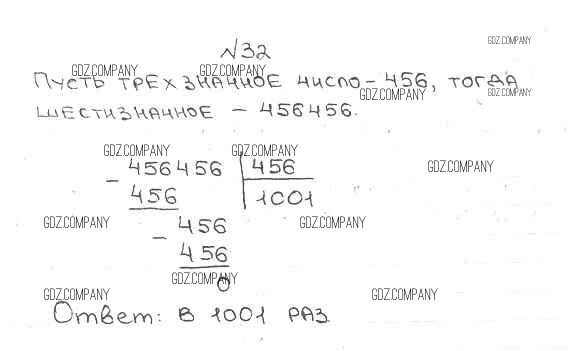 №32
GDZ.COMPANY
GDZ.COMPANY GDZ.COMPANY
Пусть трехзначное число - 456, тогда
GDZ.COMPANY GDZ.COMPANY
шестизначное - 456456.
GDZ.COMPANY GDZ.COMPANY
- 456456 | 456
GDZ.COMPANY
456 | 1001
- 456
GDZ.COMPANY GDZ.COMPANY
456
GDZ.COMPANY
0
GDZ.COMPANY GDZ.COMPANY
Ответ: в 1001 раз